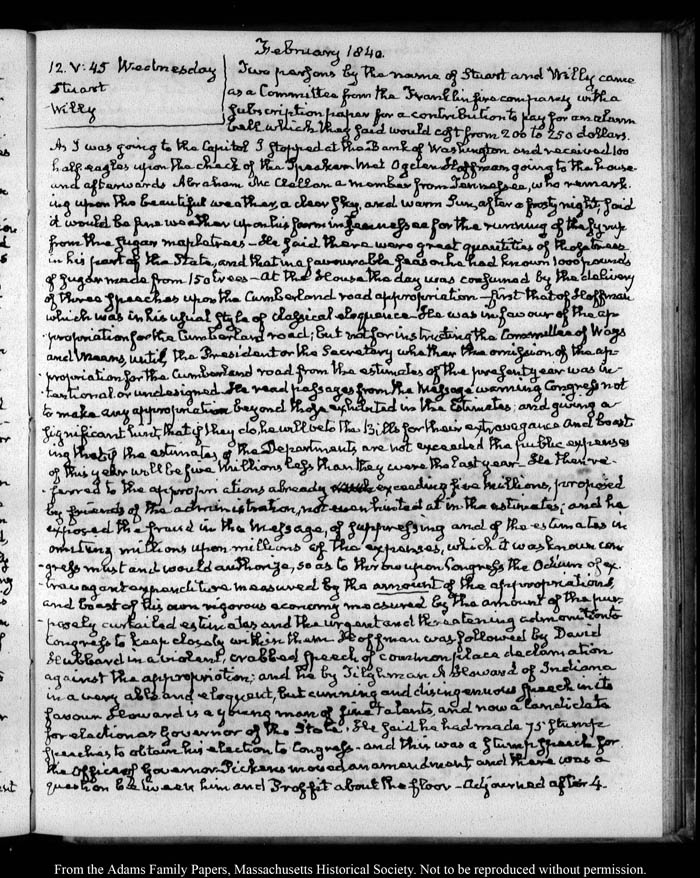 February 1840.
12. V: 45 Wednesday
Stuart
Willy
Two persons by the name of Stuart and Willy came
as a Committee from the Franklin fire company with a
subscription paper for a contribution to pay for an alarm
bell which they said would cost from 200 to 250 dollars.
As I was going to the Capitol I stopped at the Bank of Washington and received 100
half eagles upon the check of the Speaker. Met Ogden Hoffman going to the house
and afterwards Abraham Mc Clellan a member from Tennessee, who remark-
ing upon the beautiful weather, a clear sky, and warm Sun, after a frosty night, said
it would be fine weather upon his farm in Tennessee for the running of the Syrup
from the Sugar maple trees – He said there were great quantities of those trees
in his part of the State, and that in a favourable season he had known 1000 pounds
of Sugar made from 150 trees – At the House the day was consumed by the delivery
of three speeches upon the Cumberland road appropriation – first that of Hoffman
which was in his usual style of classical eloquence – He was in favour of the ap-
propriation for the Cumberland road; but not for instructing the Committee of Ways
and Means, until, the President or the Secretary whether the omission of the ap-
propriation for the Cumberland road from the estimates of the present year was in-
tentional or undesigned. He read passages from the Message warning Congress not
to make any appropriation beyond those exhibited in the Estimates; and giving a
significant hint, that if they do, he will veto the Bills for their extravagance and boast-
ing that if the estimates of the Departments are not exceeded the public expenses
of this year will be five Millions less than they were the last year – He then re-
ferred to the appropriations already exceeding five Millions, proposed
by friends of the administration, not even hinted at in the estimates; and he
exposed the fraud in the Message, of suppressing and of the estimates in
omitting millions upon millions of the expenses, which it was known Con-
gress must and would authorize, so as to throw upon Congress the Odium of ex-
travagant expenditure measured by the amount of the appropriations,
and boast of his own rigorous economy measured by the amount of the pur-
posely curtailed estimates and the urgent and threatening admonition to
Congress to keep closely within them. Hoffman was followed by David
Hubbard in a violent, crabbed speech of common place declamation
against the appropriation; and he by Tilghman A Howard of Indiana
in a very able and eloquent, but cunning and disingenuous speech in its
favour. Howard is a young man of fine talents, and now a candidate
for election as Governor of the State. He said he had made 75 stump
speeches to obtain his election to Congress – and this was a stump speech for
the Office of Governor. Pickens moved an amendment and there was a
question between him and Proffit about the floor – Adjourned after 4.
From the Adams Family Papers, Massachusetts Historical Society. Not to be reproduced without permission.